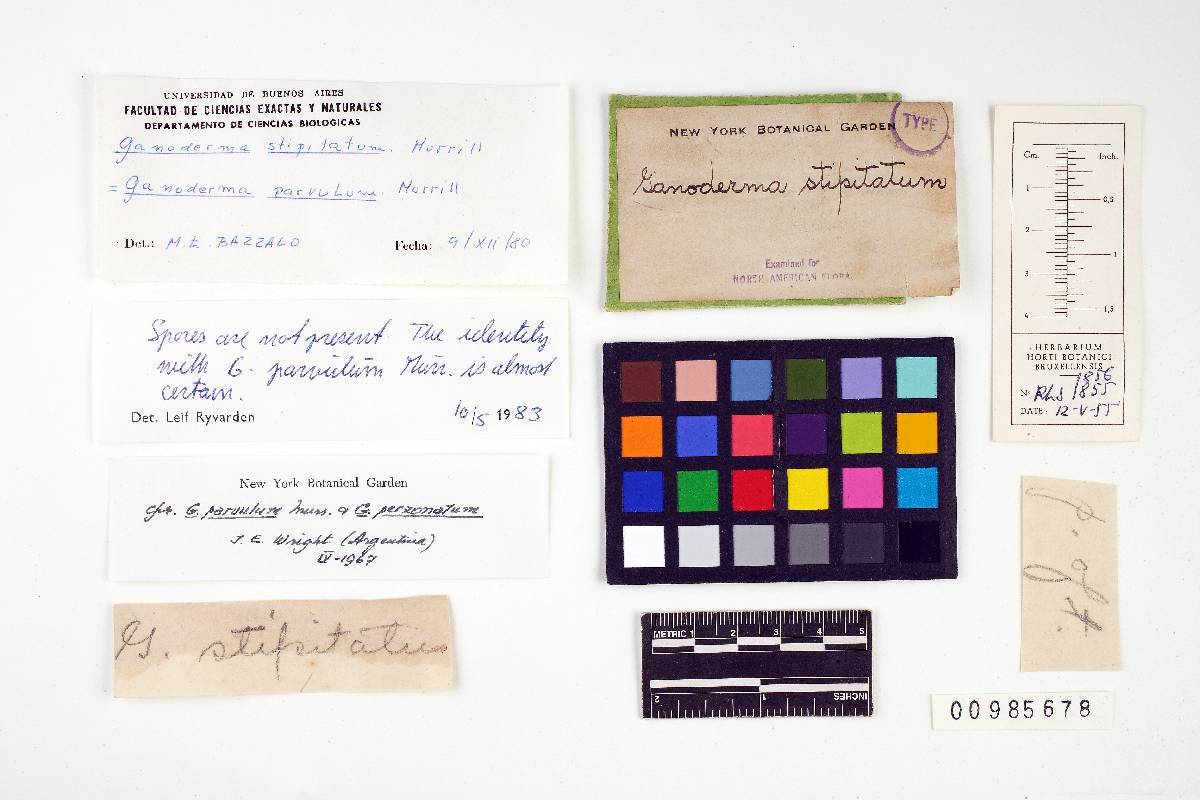 UNIVERSIDAD DE BUENOS AIRES
FACULTAD DE CIENCIAS EXACTAS Y NATURALES
DEPARTAMENTO DE CIENCIAS BIOLOGICAS
Ganoderma stipitatum. Murrill
= Ganoderma parvulum. Murrill
Det.: M. E. BAZZALO Fecha: 9/XII/80
Spores are not present. The identity
with G. parvulum Murr. is almost
certain.
Det. Leif Ryvarden 10/5 1983
New York Botanical Garden
cfr. G. parvulum Murr. a G. perzonatum
J. E. Wright (Argentina)
IV-1967
G. stipitatum
NEW YORK BOTANICAL GARDEN
TYPE
Ganoderma stipitatum
Examined for
NORTH AMERICAN FLORA
METRIC 1 2 3 4 5
2 1 INCHES
Cm. Inch.
1
0,5
2
1
3
4
1,5
HERBARIUM
HORTI BOTANICI
BRUXELLENSIS
1856
N° RLS 1855
DATE: 12-V-55
00985678